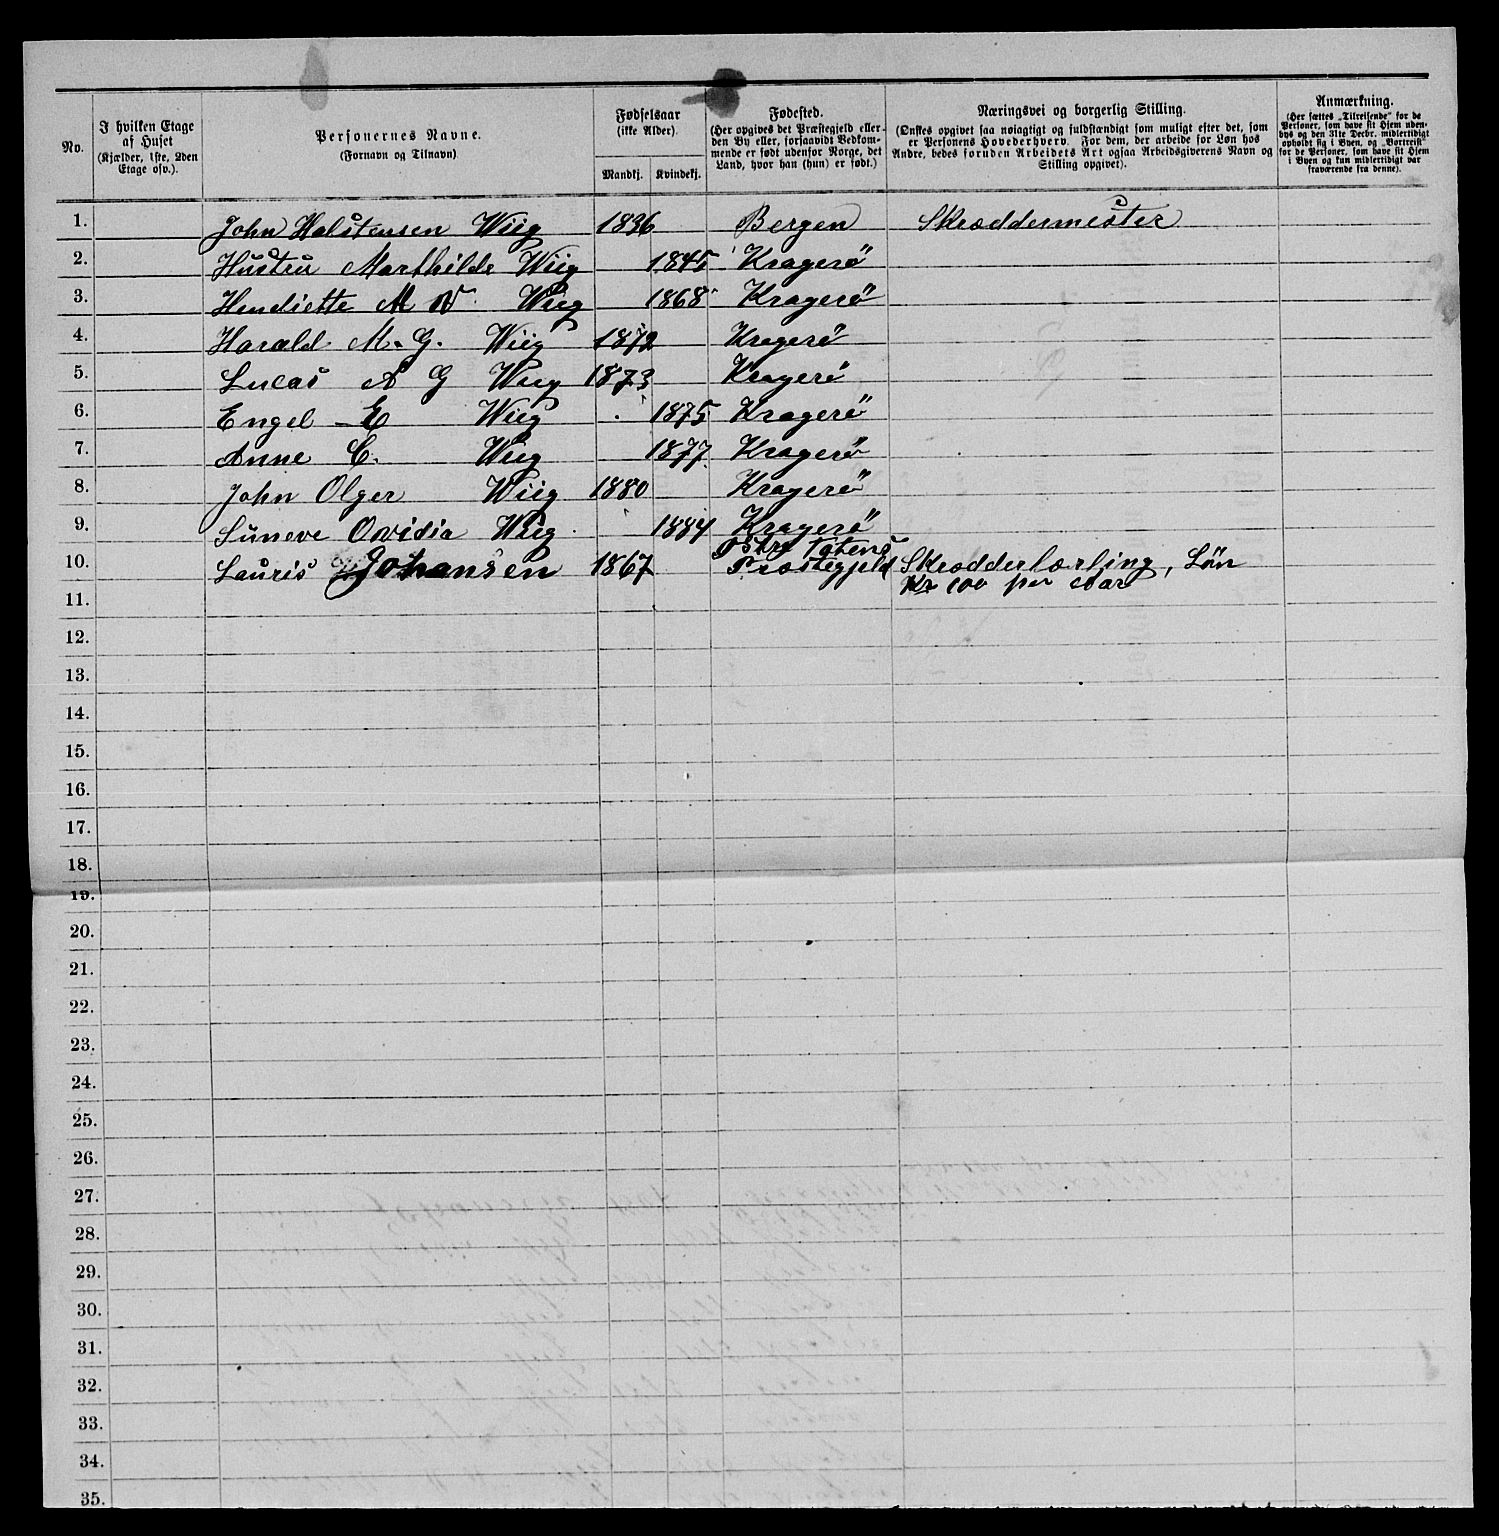 No. I hvilken Etage af Huset (Kjælder, 1ste, 2den Etage osv.). Personernes Navne. (Fornavn og Tilnavn) Fødselsaar (ikke Alder) Mandkj. Kvindekj. Fødested. (Her opgives det Præstegjeld eller den By eller, forsaavidt Vedkommende er født udenfor Norge, det Land, hvor han (hun) er født.) Næringsvei og borgerlig Stilling. (Ønskes opgivet saa nøiagtigt og fuldstændigt som muligt efter det, som er Personens Hovederhverv. For dem, der arbeide for Løn hos Andre, bedes foruden Arbeidets Art ogsaa Arbeidsgiverens Navn og Stilling opgivet). Anmærkning. (Her sættes „Tilreisende“ for de Personer, som have sit Hjem udenbys og den 31te Decbr. midlertidigt opholdt sig i Byen, og „Bortreist“ for de Personer, som have sit Hjem i Byen og kun midlertidigt var fraværende fra denne).
1. John Halstensen Wiig 1836 Bergen Skræddermester
2. Hustru Marthilde Wiig 1845 Kragerø
3. Hendiette M N Wiig 1868 Kragerø
4. Harald M. G. Wiig 1872 Kragerø
5. Lucas A G Wiig 1873 Kragerø
6. Engel E Wiig 1875 Kragerø
7. Anne C. Wiig 1877 Kragerø
8. John Olger Wiig 1880 Kragerø
9. Suneve Ovidia Wiig 1884 Kragerø
10. Lauris Johansen 1867 Østre Totens Præstegjeld Skrædderlærling, Løn
11. Kr 100 per Aar
12.
13.
14.
15.
16.
17.
18.
19.
20.
21.
22.
23.
24.
25.
26.
27.
28.
29.
30.
31.
32.
33.
34.
35.